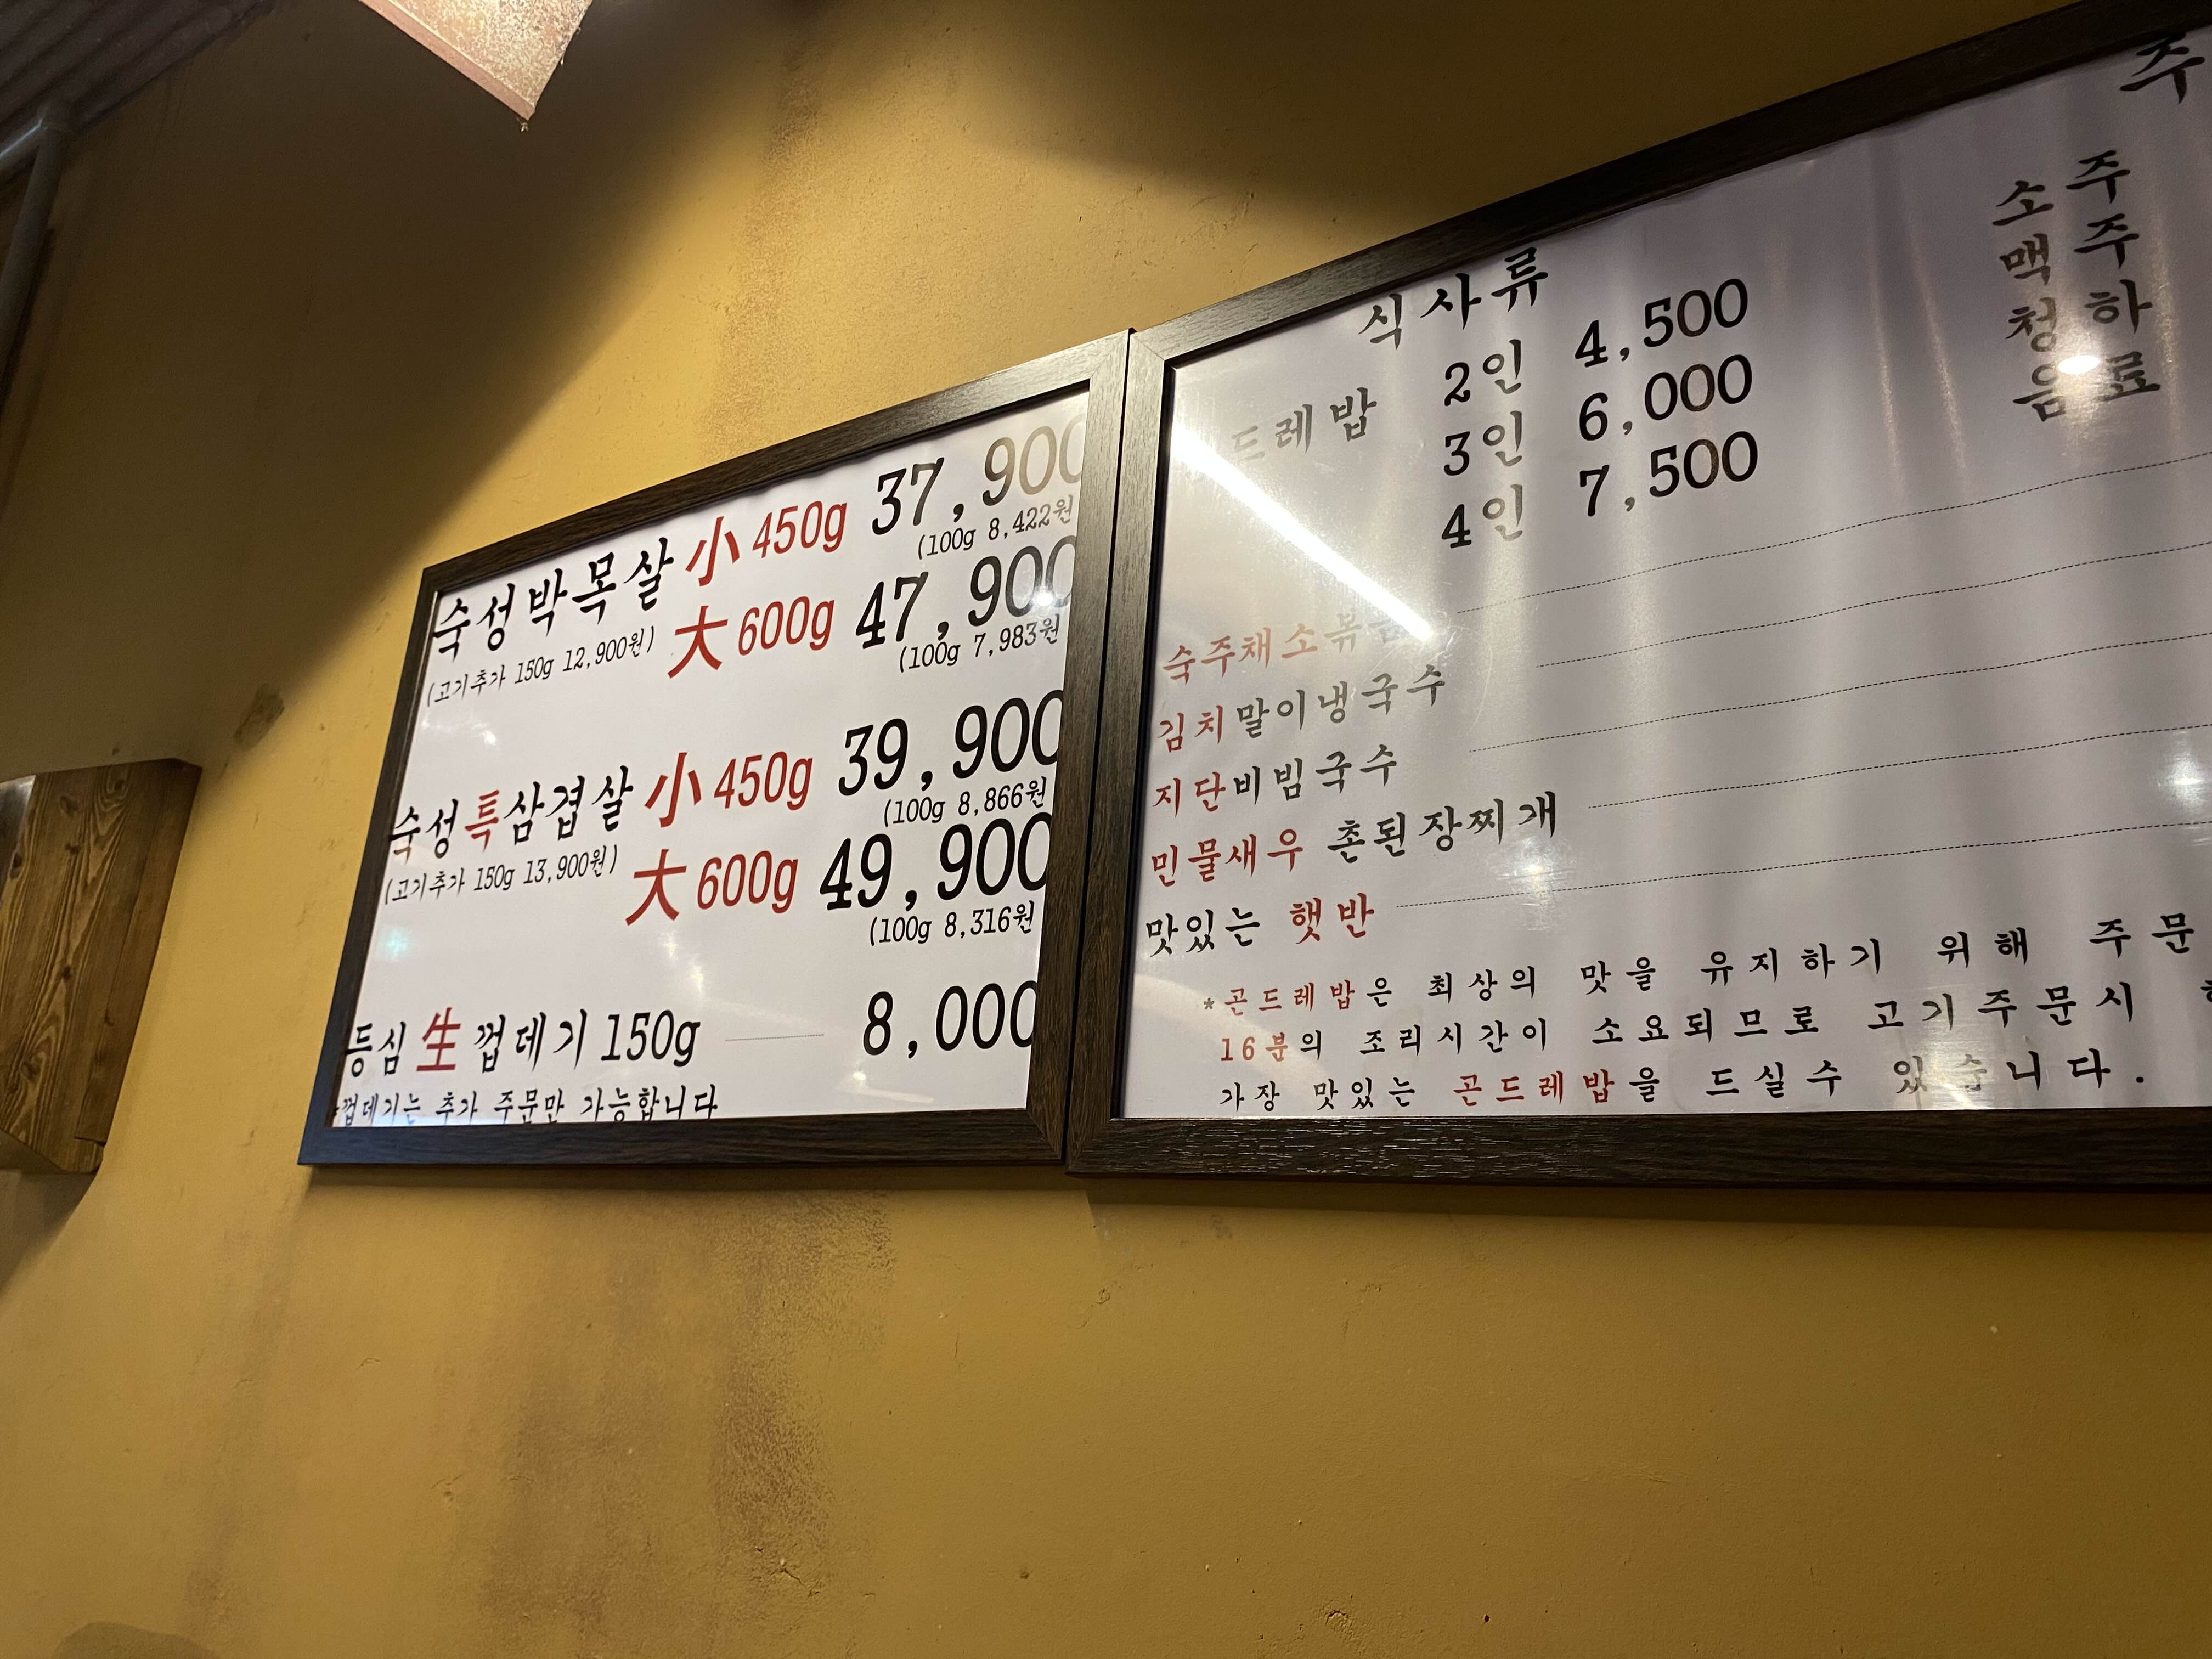 숙성박목살 小 450g 37,900
(100g 8,422원
(고기추가 150g 12,900원) 大 600g 47,900
(100g 7,983원
숙성특삼겹살 小 450g 39,900
(100g 8,866원
(고기추가 150g 13,900원) 大 600g 49,900
(100g 8,316원
등심 生 껍데기 150g 8,000
*껍데기는 추가 주문만 가능합니다
식사류
드레밥 2인 4,500
3인 6,000
4인 7,500
숙주채소볶음
김치말이냉국수
지단비빔국수
민물새우 촌된장찌개
맛있는 햇반
*곤드레밥은 최상의 맛을 유지하기 위해 주문
16분의 조리시간이 소요되므로 고기주문시
가장 맛있는 곤드레밥을 드실수 있습니다.
주
소주
맥주
청하
음료